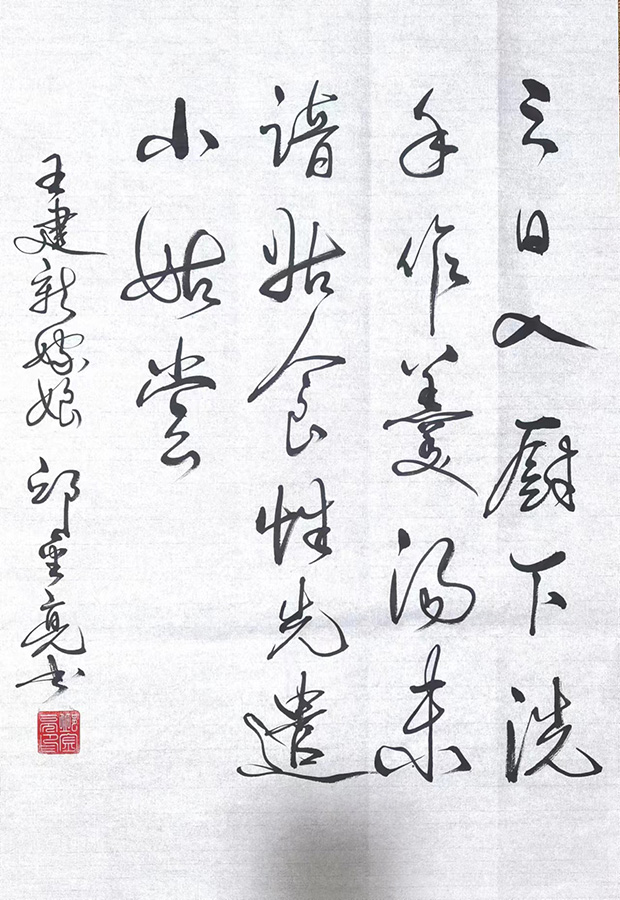 三日入厨下洗
手作羹汤未
谙姑食性先遣
小姑尝
王建新嫁娘 邱金亮书